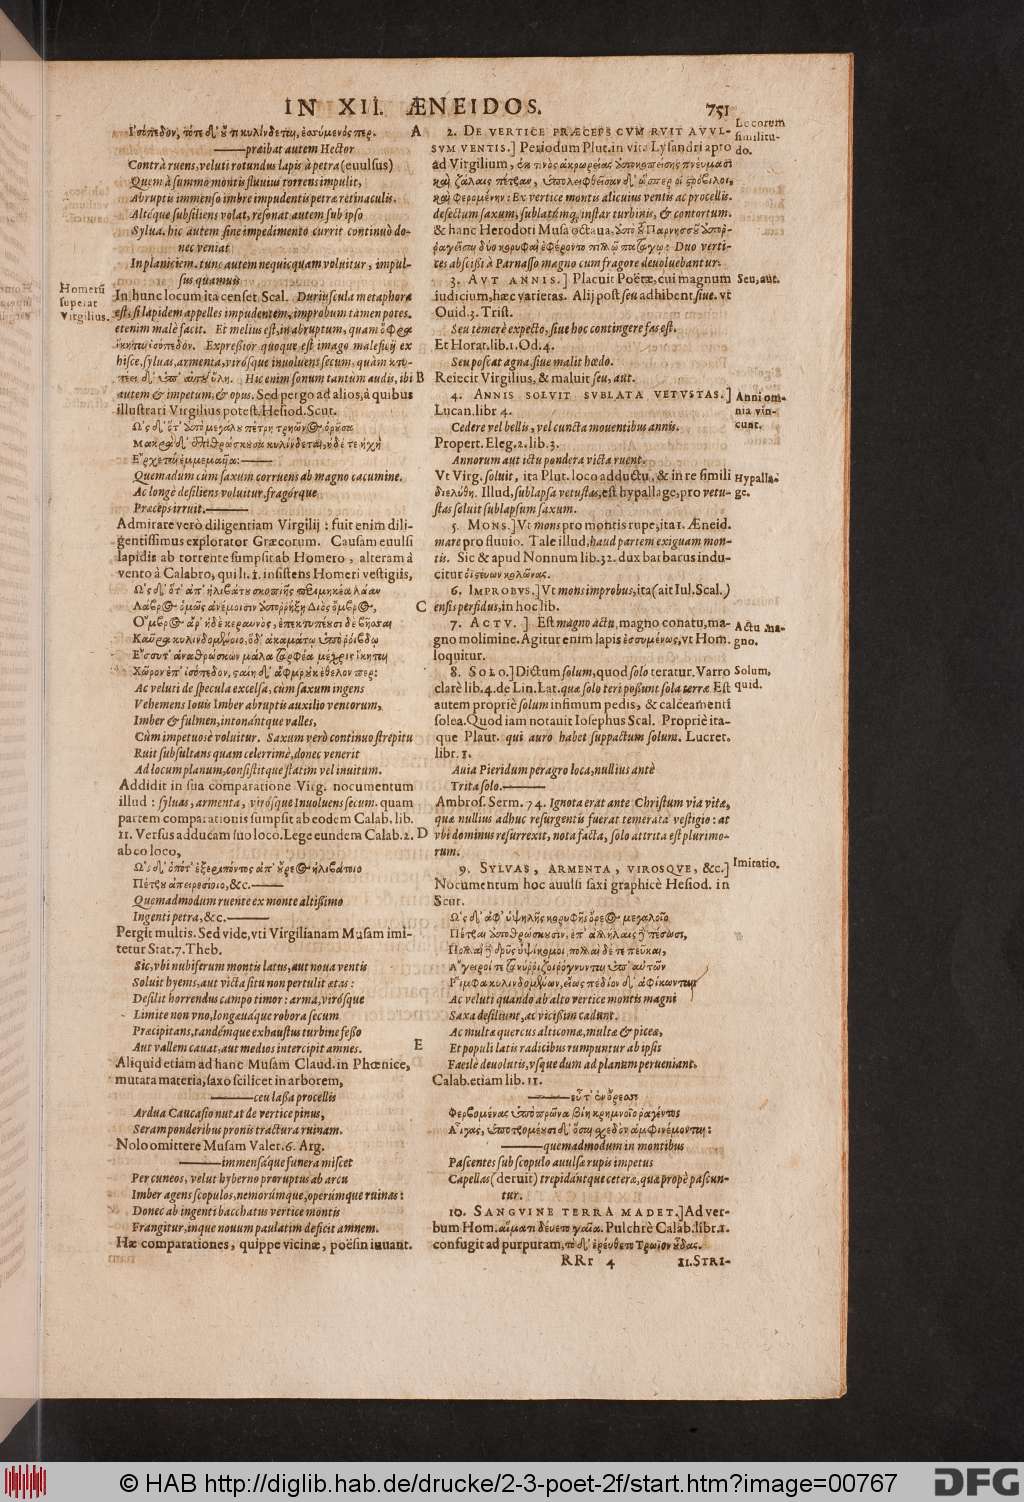 IN XII. ÆNEIDOS. 751
præibat autem Hector
Contrà ruens, veluti rotundus lapis à petra (euulsus)
Quem à summo montis fluuius torrens impulit,
Abruptis immenso imbre impudentis petræ retinaculis.
Altéque subsiliens volat, resonat autem sub ipso
Sylua. hic autem sine impedimento currit continuò do-
nec veniat
In planiciem. tunc autem nequicquam voluitur, impul-
sus quamuis
Homerũ
superat
Virgilius.
In hunc locum ita censet Scal. Duriuscula metaphora
est, si lapidem appelles impudentem, improbum tamen potes.
etenim malè facit. Et melius est, in abruptum, quam ὄφρα
ἵκηται ἰσόπεδον. Expreßior quoque est imago maleficij ex
hisce, syluas, armenta, virósque inuoluens secum, quàm κτυ-
πέει δέ θ' ὑπ' αὐτοῦ ὕλη. Hic enim sonum tantùm audis, ibi
autem & impetum, & opus. Sed pergo ad alios, à quibus
illustrari Virgilius potest. Hesiod. Scut.
Quemadmodum cùm saxum corruens ab magno cacumine.
Ac longè desiliens voluitur, fragórque
Præceps irruit.
Admirare verò diligentiam Virgilij: fuit enim dili-
gentissimus explorator Græcorum. Causam euulsi
lapidis ab torrente sumpsit ab Homero, alteram à
vento à Calabro, qui li. 1. insistens Homeri vestigiis,
Ac veluti de specula excelsa, cùm saxum ingens
Vehemens Iouis Imber abruptis auxilio ventorum,
Imber & fulmen, intonántque valles,
Cùm impetuosè voluitur. Saxum verò continuo strepitu
Ruit subsultans quam celerrimè, donec venerit
Ad locum planum, consistitque statim vel inuitum.
Addidit in sua comparatione Virg. nocumentum
illud: syluas, armenta, virósque Inuoluens secum. quam
partem comparationis sumpsit ab eodem Calab. lib.
11. Versus adducam suo loco. Lege eundem Calab. 2.
ab eo loco,
Πέτρου ἀπειρεσίοιο, &c.
Quemadmodum ruente ex monte altißimo
Ingenti petra, &c.
Pergit multis. Sed vide, vti Virgilianam Musam imi-
tetur Stat. 7. Theb.
Sic, vbi nubiferum montis latus, aut noua ventis
Soluit hyems, aut victa situ non pertulit ætas:
Desilit horrendus campo timor: arma, virósque
Limite non vno, longæuáque robora secum
Præcipitans, tandémque exhaustus turbine fesso
Aut vallem cauat, aut medios intercipit amnes.
Aliquid etiam ad hanc Musam Claud. in Phœnice,
mutata materia, saxo scilicet in arborem,
ceu lassa procellis
Ardua Caucasio nutat de vertice pinus,
Seram ponderibus pronis tractura ruinam.
Nolo omittere Musam Valer. 6. Arg.
immensáque funera miscet
Per cuneos, velut hyberno proruptus ab arcu
Imber agens scopulos, nemorúmque, operúmque ruinas:
Donec ab ingenti bacchatus vertice montis
Frangitur, inque nouum paulatim deficit amnem.
Hæ comparationes, quippe vicinæ, poësin iuuant.
A
B
C
D
E
2. DE VERTICE PRÆCEPS CVM RVIT AVVL-
SVM VENTIS.] Periodum Plut. in vita Lysandri apto
ad Virgilium,
Ex vertice montis alicuius ventis ac procellis.
desectum saxum, sublatúmq; instar turbinis, & contortum.
& hanc Herodoti Musa octaua,
Duo verti-
ces abscißi à Parnasso magno cum fragore deuoluebantur.
Locorum
similitu-
do.
3. AVT ANNIS.] Placuit Poëtæ, cui magnum
iudicium, hæc varietas. Alij post seu adhibent siue. vt
Ouid. 3. Trist.
Seu temerè expecto, siue hoc contingere fas est.
Et Horat. lib. 1. Od. 4.
Seu poscat agna, siue malit hœdo.
Reiecit Virgilius, & maluit seu, aut.
Seu, aut.
4. ANNIS SOLVIT SVBLATA VETVSTAS.]
Lucan. libr 4.
Cedere vel bellis, vel cuncta mouentibus annis.
Propert. Eleg. 2. lib. 3.
Annorum aut ictu pondera victa ruent.
Vt Virg. soluit, ita Plut. loco adducto, & in re simili
διελύθη. Illud, sublapsa vetustas, est hypallage, pro vetu-
stas soluit sublapsum saxum.
Anni om-
nia vin-
cunt.
Hypalla-
ge.
5. MONS.] Vt mons pro montis rupe, ita 1. Æneid.
mare pro fluuio. Tale illud, haud partem exiguam mon-
tis. Sic & apud Nonnum lib. 32. dux barbarus indu-
citur ὀϊστεύων κολώνας.
6. IMPROBVS.] Vt mons improbus, ita (ait Iul. Scal.)
ensis perfidus, in hoc lib.
7. ACTV.] Est magno actu, magno conatu, ma-
gno molimine. Agitur enim lapis ἐσσυμένως, vt Hom.
loquitur.
Actu ma-
gno.
8. SOLO.] Dictum solum, quod solo teratur. Varro
clarè lib. 4. de Lin. Lat. quæ solo teri possunt sola terræ Est
autem propriè solum infimum pedis, & calceamenti
solea. Quod iam notauit Iosephus Scal. Propriè ita-
que Plaut. qui auro habet suppactum solum. Lucret.
libr. 1.
Auia Pieridum peragro loca, nullius antè
Trita solo.
Ambros. Serm. 74. Ignota erat ante Christum via vitæ,
quæ nullius adhuc resurgentis fuerat temerata vestigio: at
vbi dominus resurrexit, nota facta, solo attrita est plurimo-
rum.
Solum,
quid.
9. SYLVAS, ARMENTA, VIROSQVE, &c.]
Nocumentum hoc auulsi saxi graphicè Hesiod. in
Scut.
Imitatio.
Ac veluti quando ab alto vertice montis magni
Saxa desiliunt, ac vicißim cadunt.
Ac multæ quercus alticomæ, multæ & piceæ,
Et populi latis radicibus rumpuntur ab ipsis
Facilè deuolutis, vsque dum ad planum perueniant.
Calab. etiam lib. 11.
quemadmodum in montibus
Pascentes sub scopulo auulsæ rupis impetus
Capellas (deruit) trepidántque ceteræ, quæ propè pascun-
tur.
10. SANGVINE TERRA MADET.] Ad ver-
bum Hom. αἵματι δεύετο γαῖα. Pulchrè Calab. libr. 1.
confugit ad purpuram, τὸ δ' ἐρεύθετο Τρώϊον οὖδας.
RRr 4
11. STRI-
© HAB http://diglib.hab.de/drucke/2-3-poet-2f/start.htm?image=00767
DFG